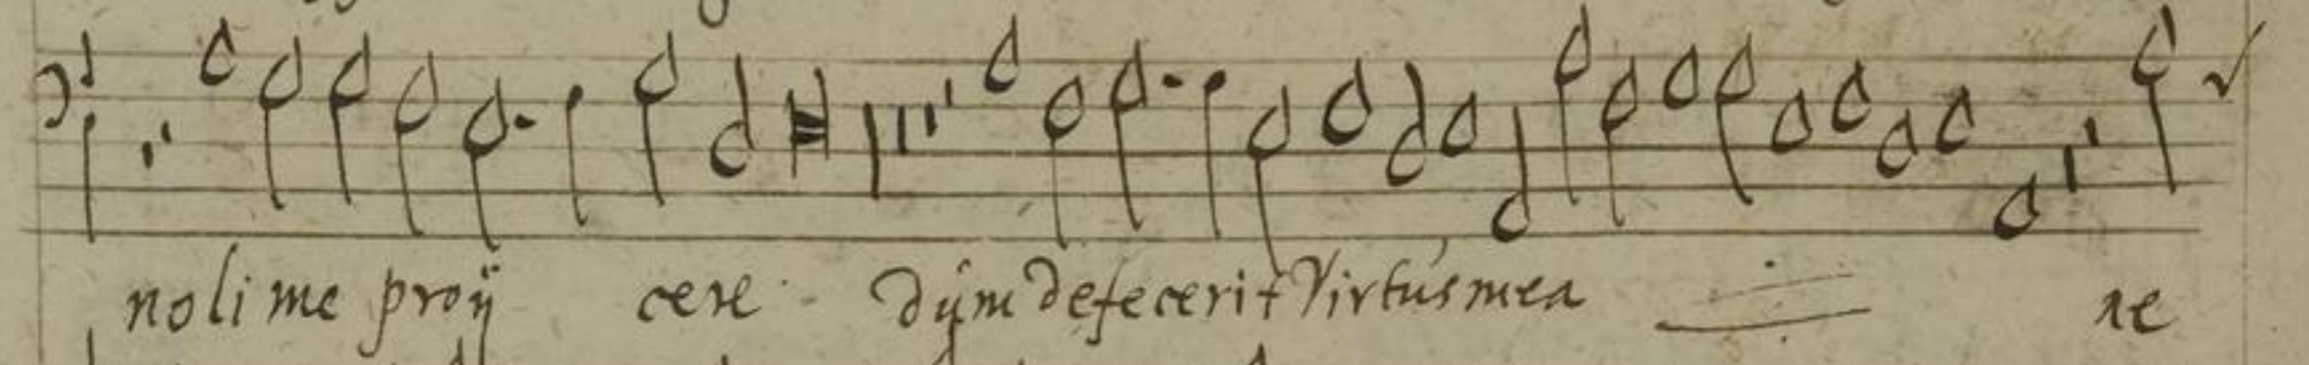 noli me proij cere dum defecerit Virtus mea ne